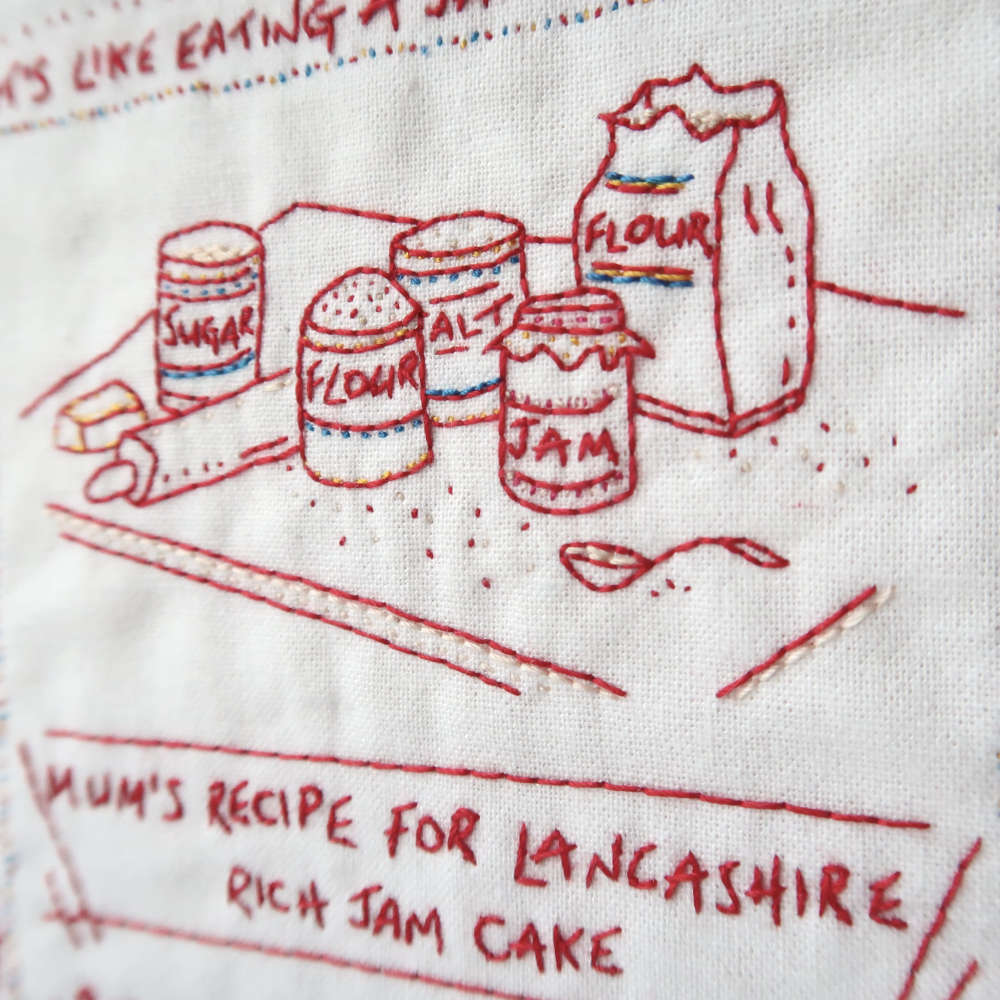 LIKE EATING A
FLOUR
SUGAR
ALT
FLOUR
JAM
MUM'S RECIPE FOR LANCASHIRE
RICH JAM CAKE